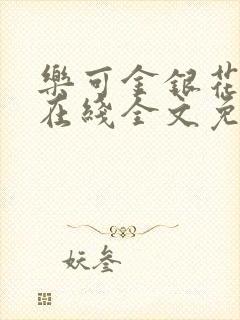 樂可金銀花
在綫全文免
妖叁